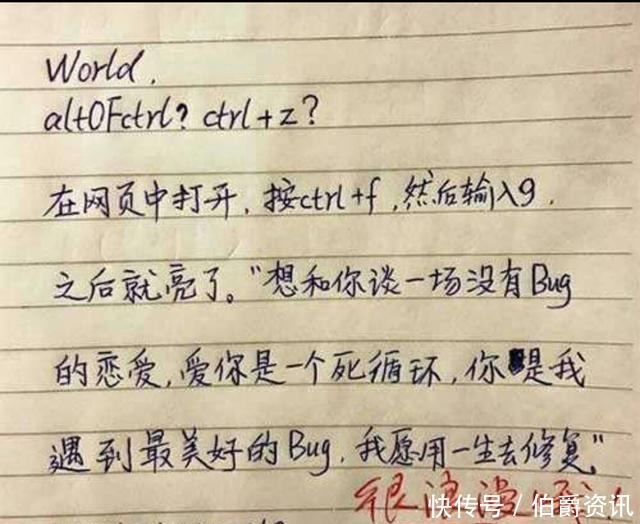 World.
alt0Fctrl? ctrl+z?
在网页中打开,按ctrl+f,然后输入9.
之后就亮了。"想和你谈一场没有Bug
的恋爱,爱你是一个死循环,你是我
遇到最美好的Bug,我愿用一生去修复"
很浪漫
快传号/伯爵资讯